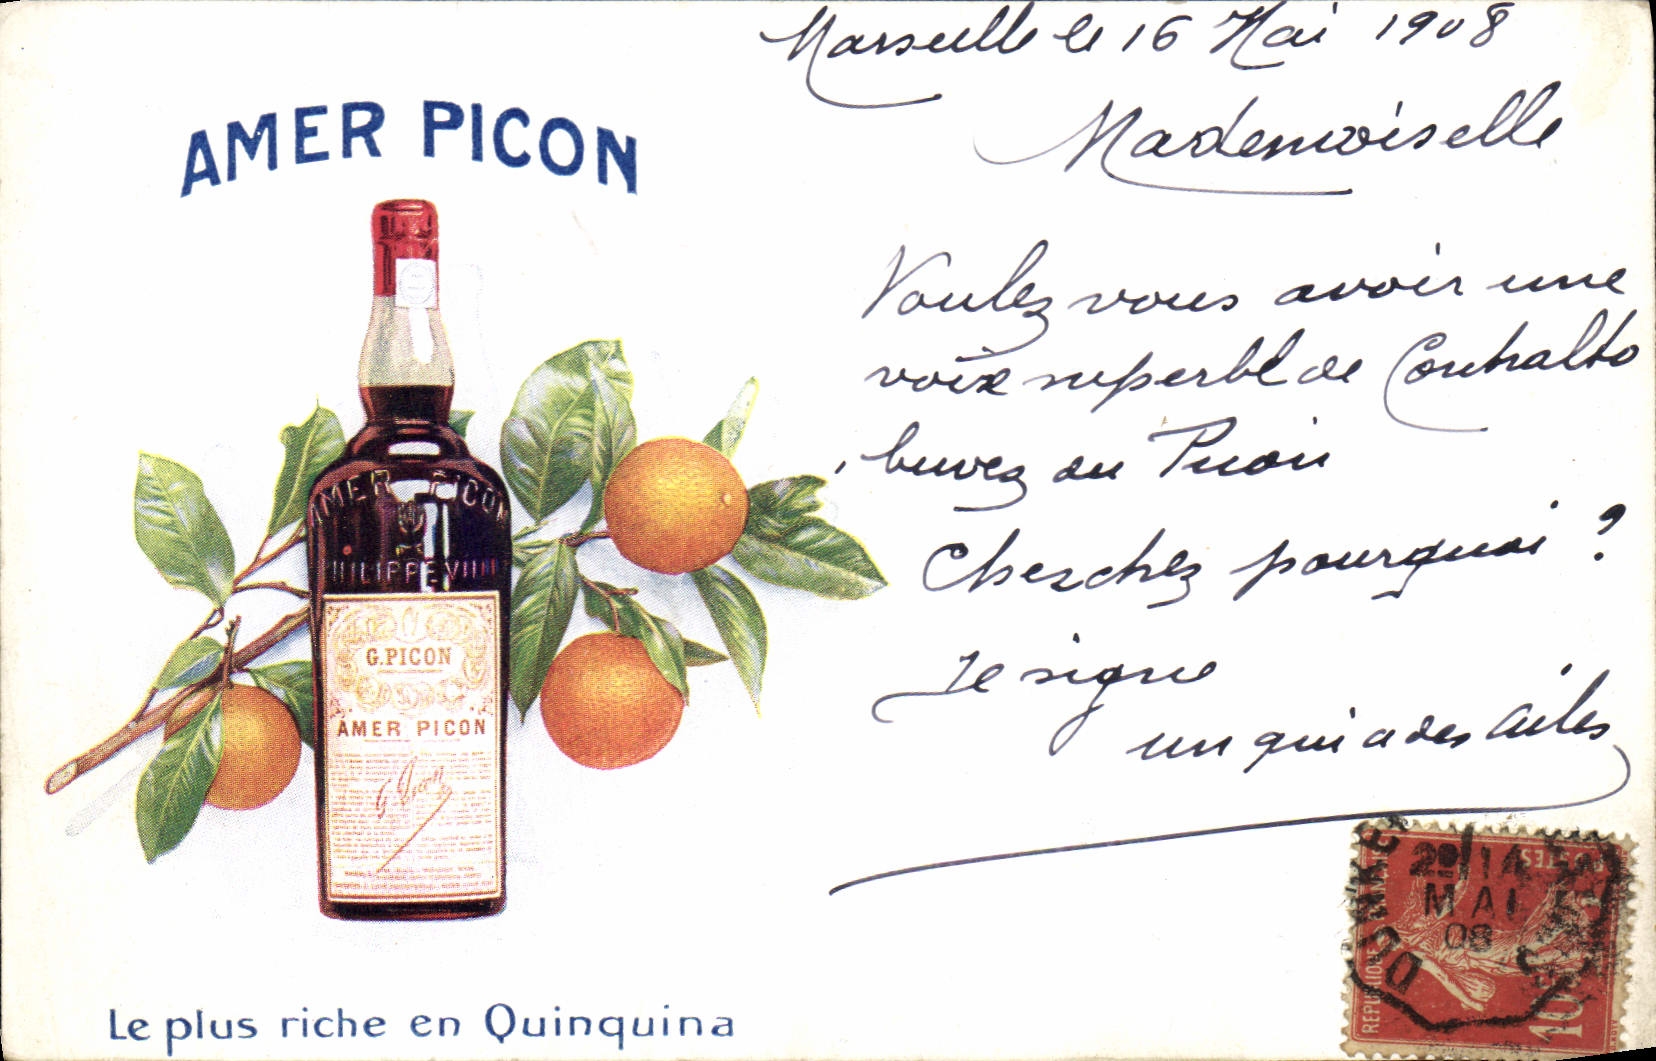 AMER PICON
AMER PICON
PHILIPPEVILLE
G. PICON
AMER PICON
G. Picon
Le plus riche en Quinquina
Marseille le 16 Mai 1908
Mademoiselle
Voulez vous avoir une
voix superbe de Contralto
buvez du Picon
Cherchez pourquoi ?
Je signe
un qui a des ailes
MAI
08
10